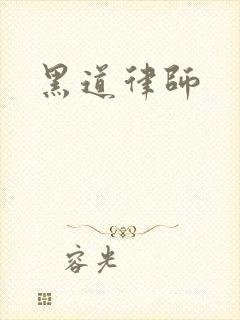 黑道律師
容光